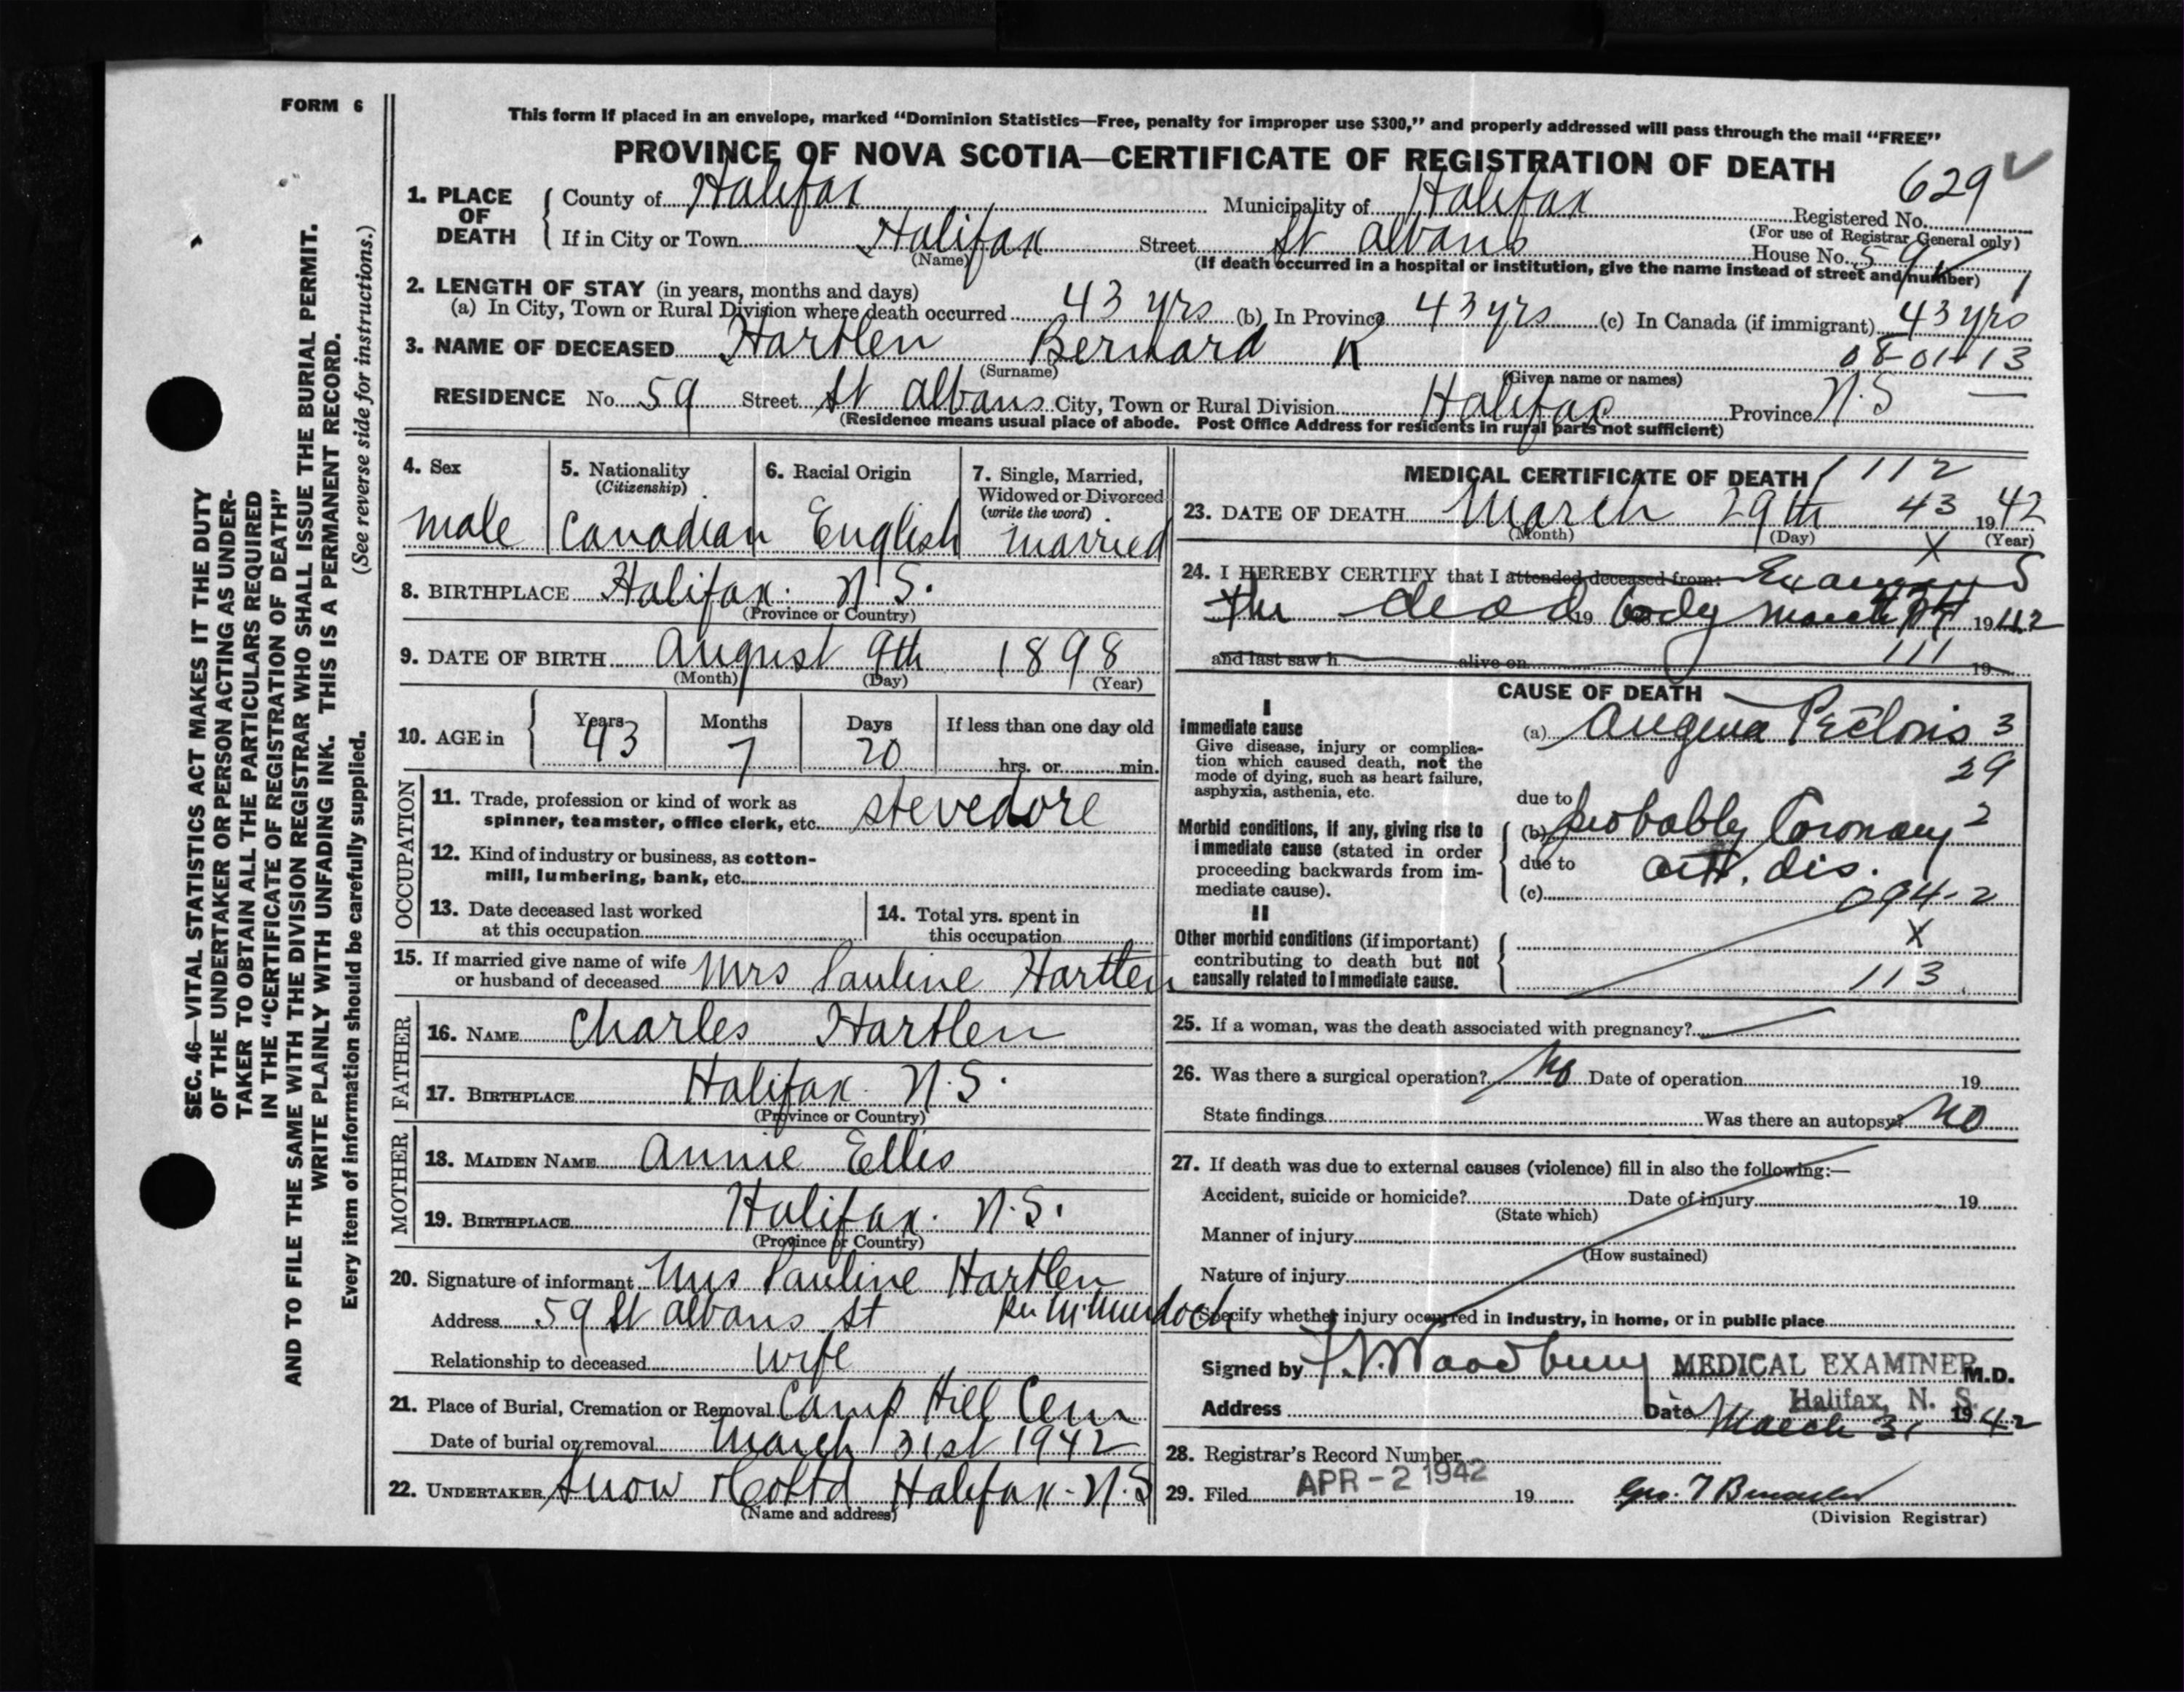 FORM 6
This form if placed in an envelope, marked "Dominion Statistics—Free, penalty for improper use $300," and properly addressed will pass through the mail "FREE"
PROVINCE OF NOVA SCOTIA—CERTIFICATE OF REGISTRATION OF DEATH
629
1. PLACE OF DEATH
County of Halifax Municipality of Halifax Registered No.
(For use of Registrar General only)
If in City or Town Halifax Street St Albans House No. 59
(Name) (If death occurred in a hospital or institution, give the name instead of street and number)
2. LENGTH OF STAY (in years, months and days)
(a) In City, Town or Rural Division where death occurred 43 yrs (b) In Province 43 yrs (c) In Canada (if immigrant) 43 yrs
3. NAME OF DECEASED Hartlen Bernard K 08-01-13
(Surname) (Given name or names)
RESIDENCE No. 59 Street St Albans City, Town or Rural Division Halifax Province N.S —
(Residence means usual place of abode. Post Office Address for residents in rural parts not sufficient)
4. Sex
male
5. Nationality
(Citizenship)
Canadian
6. Racial Origin
English
7. Single, Married,
Widowed or Divorced
(write the word)
married
8. BIRTHPLACE Halifax. N.S.
(Province or Country)
9. DATE OF BIRTH August 9th 1898
(Month) (Day) (Year)
10. AGE in
Years 43
Months 7
Days 20
If less than one day old
hrs. or min.
OCCUPATION
11. Trade, profession or kind of work as
spinner, teamster, office clerk, etc. stevedore
12. Kind of industry or business, as cotton-
mill, lumbering, bank, etc.
13. Date deceased last worked
at this occupation
14. Total yrs. spent in
this occupation
15. If married give name of wife
or husband of deceased Mrs Pauline Hartlen
FATHER
16. NAME Charles Hartlen
17. BIRTHPLACE Halifax. N.S.
(Province or Country)
MOTHER
18. MAIDEN NAME Annie Ellis
19. BIRTHPLACE Halifax. N.S.
(Province or Country)
20. Signature of informant Mrs Pauline Hartlen
Address 59 St Albans St
Relationship to deceased wife
21. Place of Burial, Cremation or Removal Camp Hill Cem
Date of burial or removal March 31st 1942
22. UNDERTAKER Snow & Co Ltd Halifax. N.S
(Name and address)
MEDICAL CERTIFICATE OF DEATH 1112
23. DATE OF DEATH March 29th 43 1942
(Month) (Day) (Year)
X
24. I HEREBY CERTIFY that I attended deceased from:
the dead 19 body March 1942
and last saw h alive on 19
111
CAUSE OF DEATH
I
Immediate cause
Give disease, injury or complica-
tion which caused death, not the
mode of dying, such as heart failure,
asphyxia, asthenia, etc.
(a) Angina Pectoris 3
29
due to
Morbid conditions, if any, giving rise to
immediate cause (stated in order
proceeding backwards from im-
mediate cause).
(b) probably Coronary 2
due to art. dis.
(c) 094-2
II
Other morbid conditions (if important)
contributing to death but not
causally related to immediate cause.
X
113
25. If a woman, was the death associated with pregnancy?
26. Was there a surgical operation? No Date of operation 19
State findings Was there an autopsy? No
27. If death was due to external causes (violence) fill in also the following:—
Accident, suicide or homicide? Date of injury 19
(State which)
Manner of injury
(How sustained)
Nature of injury
Specify whether injury occurred in industry, in home, or in public place
Signed by Woodbury MEDICAL EXAMINER M.D.
Halifax, N. S.
Address Date March 31 1942
28. Registrar's Record Number
29. Filed APR -2 1942 19
(Division Registrar)
SEC. 46—VITAL STATISTICS ACT MAKES IT THE DUTY
OF THE UNDERTAKER OR PERSON ACTING AS UNDER-
TAKER TO OBTAIN ALL THE PARTICULARS REQUIRED
IN THE "CERTIFICATE OF REGISTRATION OF DEATH"
AND TO FILE THE SAME WITH THE DIVISION REGISTRAR WHO SHALL ISSUE THE BURIAL PERMIT.
WRITE PLAINLY WITH UNFADING INK. THIS IS A PERMANENT RECORD.
Every item of information should be carefully supplied. (See reverse side for instructions.)